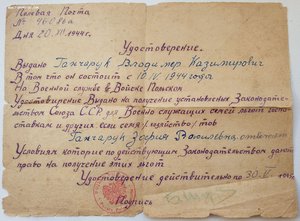 Полевая Почта
№ 96086а
Дня 20.III.1944г.
Удостоверение.
Выдано Ганчарук Владимер Казимирович
В том что он состоит с 10.IV.1944 года
На Военной службе в Войске Польском
Удостоверение Выдано на получение установленых Законодате-
льством Союза ССР для Военно служащих семей льгот
и другим если семя (хозяйство) тов
Ганчарук Зофия Василевна отвечает
Условиям которие по действующим Законодательствам дают
право на получение этих льгот
Удостоверение действительно по 30.VI.1945
Подпись